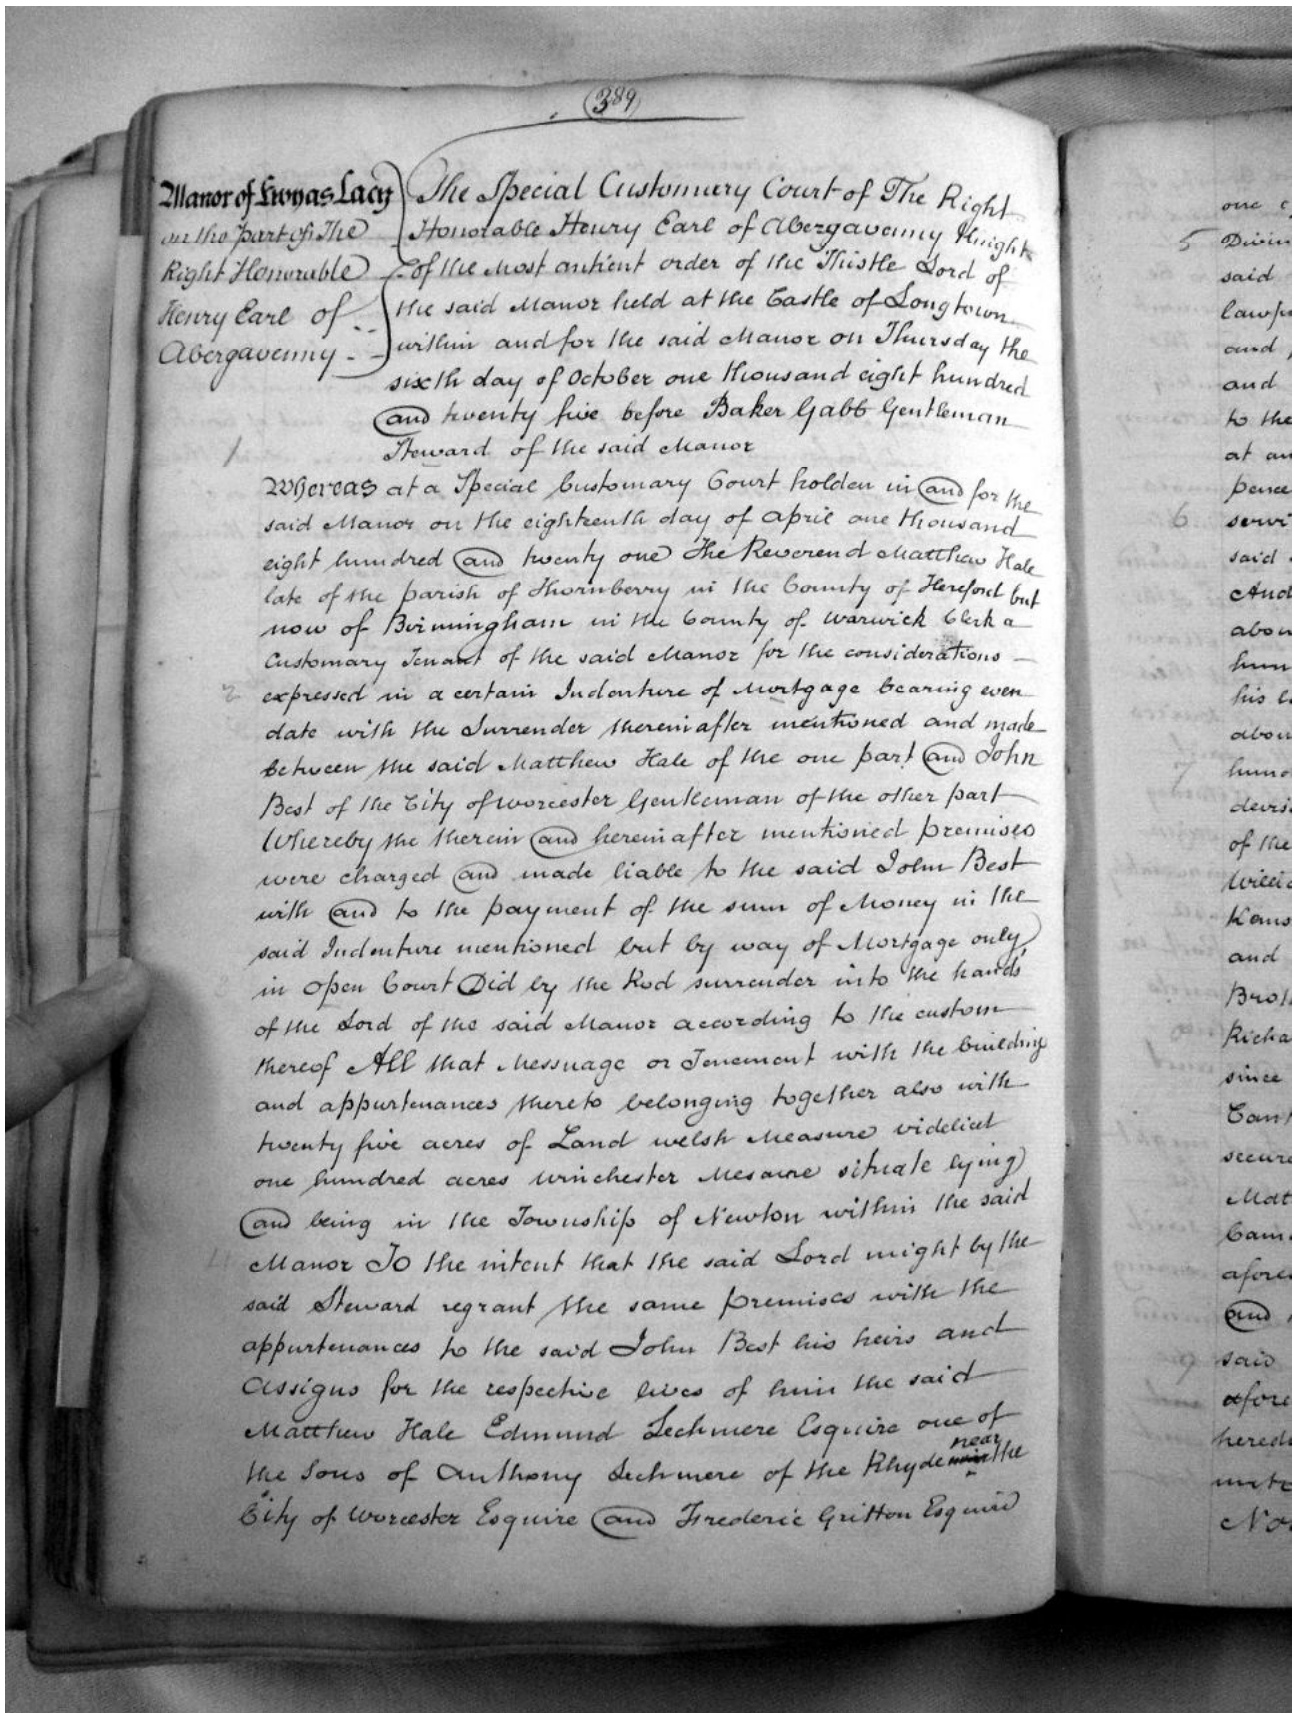 389
Manor of Ewyas Lacy
on the part of The
Right Honorable
Henry Earl of
Abergavenny
The Special Customary Court of The Right
Honorable Henry Earl of Abergavenny Knight
of the Most antient order of the Thistle Lord of
the said Manor held at the Castle of Longtown
within and for the said Manor on Thursday the
sixth day of October one thousand eight hundred
and twenty five before Baker Gabb Gentleman
Steward of the said Manor
1
Whereas at a Special Customary Court holden in and for the
said Manor on the eighteenth day of april one thousand
eight hundred and twenty one The Reverend Matthew Hale
late of the parish of Thornberry in the County of Hereford but
now of Birmingham in the County of Warwick Clerk a
Customary Tenant of the said Manor for the considerations
2
expressed in a certain Indenture of Mortgage bearing even
date with the Surrender thereinafter mentioned and made
between the said Matthew Hale of the one part and John
Best of the City of Worcester Gentleman of the other part
Whereby the therein and hereinafter mentioned premises
were charged and made liable to the said John Best
with and to the payment of the sum of Money in the
said Indenture mentioned but by way of Mortgage only
in open Court Did by the Rod surrender into the hands
of the Lord of the said Manor according to the custom
thereof All that Messuage or Tenement with the building
and appurtenances thereto belonging together also with
twenty five acres of Land welsh Measure videlicet
one hundred acres winchester Mesaure situate lying
and being in the Township of Newton within the said
4
Manor To the intent that the said Lord might by the
said Steward regrant the same premises with the
appurtenances to the said John Best his heirs and
Assigns for the respective lives of him the said
Matthew Hale Edmund Lechmere Esquire one of
the Sons of Anthony Lechmere of the Rhyde near the
City of Worcester Esquire and Frederic Gritton Esquire
5
said
and
and
to the
at
pence
6
said
And
his
of the
and
since
said